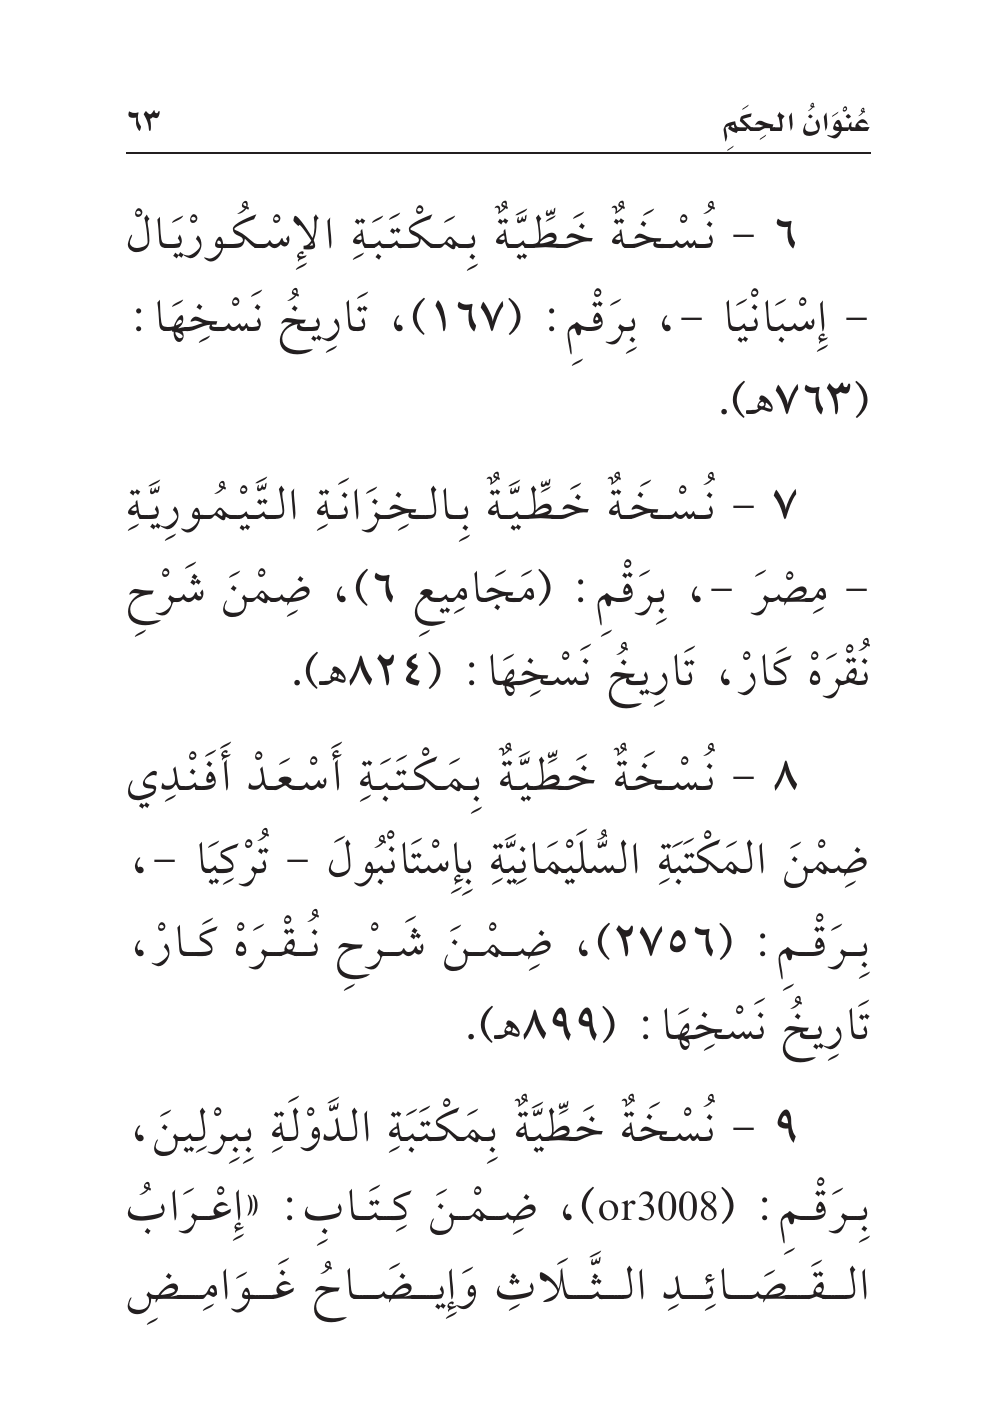 عُنْوَانُ الحِكَمِ ٦٣
٦ - نُسْخَةٌ خَطِّيَّةٌ بِمَكْتَبَةِ الإِسْكُورْيَالْ
- إِسْبَانْيَا -، بِرَقْمِ: (١٦٧)، تَارِيخُ نَسْخِهَا:
(٧٦٣هـ).
٧ - نُسْخَةٌ خَطِّيَّةٌ بِالخِزَانَةِ التَّيْمُورِيَّةِ
- مِصْرَ -، بِرَقْمِ: (مَجَامِيعِ ٦)، ضِمْنَ شَرْحِ
نُقْرَهْ كَارْ، تَارِيخُ نَسْخِهَا: (٨٢٤هـ).
٨ - نُسْخَةٌ خَطِّيَّةٌ بِمَكْتَبَةِ أَسْعَدْ أَفَنْدِي
ضِمْنَ المَكْتَبَةِ السُّلَيْمَانِيَّةِ بِإِسْتَانْبُولَ - تُرْكِيَا -،
بِرَقْمِ: (٢٧٥٦)، ضِمْنَ شَرْحِ نُقْرَهْ كَارْ،
تَارِيخُ نَسْخِهَا: (٨٩٩هـ).
٩ - نُسْخَةٌ خَطِّيَّةٌ بِمَكْتَبَةِ الدَّوْلَةِ بِبِرْلِينَ،
بِرَقْمِ: (or3008)، ضِمْنَ كِتَابِ: «إِعْرَابُ
القَصَائِدِ الثَّلَاثِ وَإِيضَاحُ غَوَامِضِ